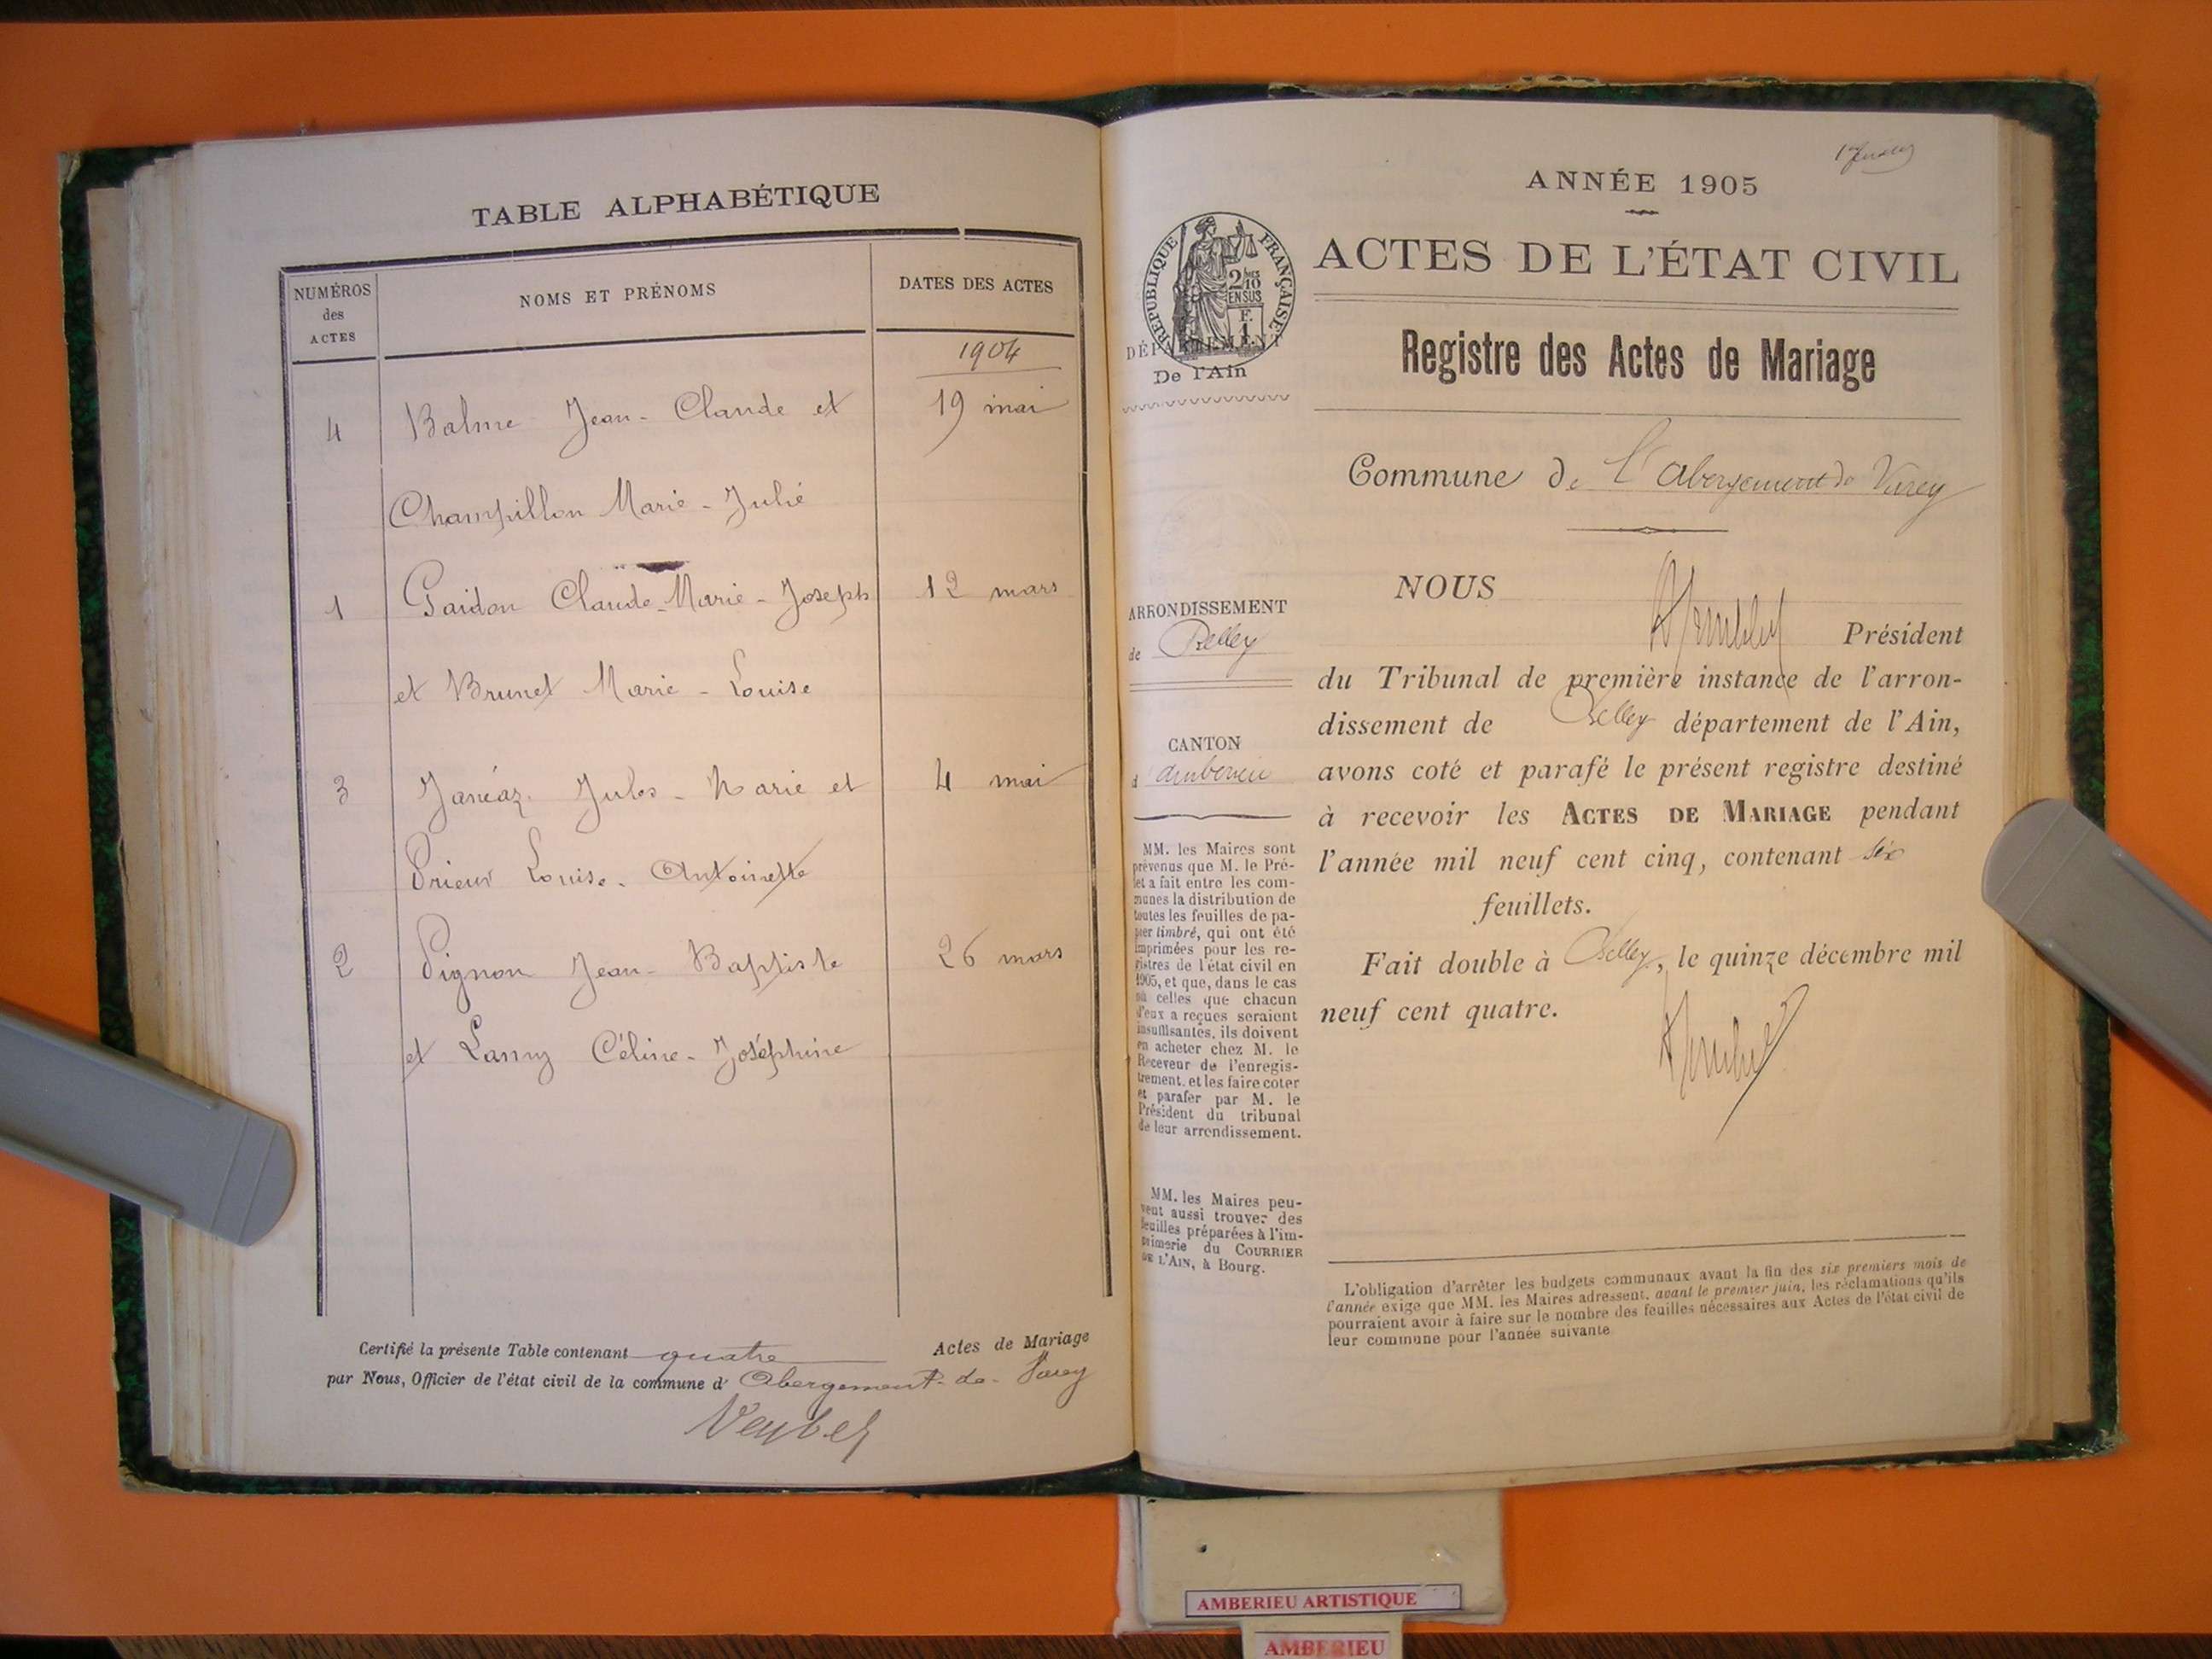 TABLE ALPHABÉTIQUE
NUMÉROS
des
ACTES
NOMS ET PRÉNOMS
DATES DES ACTES
1904
4 Balme Jean-Claude et 19 mai
Champillon Marie-Julie
1 Gaidon Claude-Marie-Joseph 12 mars
et Brunet Marie-Louise
3 Janéaz Jules-Marie et 4 mai
Prieur Louise-Antoinette
2 Pignon Jean-Baptiste 26 mars
et Lanny Céline-Joséphine
Certifié la présente Table contenant quatre Actes de Mariage
par Nous, Officier de l'état civil de la commune d' Abergement-de-Varey
ANNÉE 1905
ACTES DE L'ÉTAT CIVIL
RÉPUBLIQUE FRANÇAISE
2/10
EN SUS
F.
1
DÉPARTEMENT
De l'Ain
Registre des Actes de Mariage
Commune de L'abergement de Varey
ARRONDISSEMENT
de Belley
CANTON
d'ambérieu
MM. les Maires sont
prévenus que M. le Pré-
fet a fait entre les com-
munes la distribution de
toutes les feuilles de pa-
pier timbré, qui ont été
imprimées pour les re-
gistres de l'état civil en
1905, et que, dans le cas
où celles que chacun
d'eux a reçues seraient
insuffisantes, ils doivent
en acheter chez M. le
Receveur de l'enregis-
trement, et les faire coter
et parafer par M. le
Président du tribunal
de leur arrondissement.
MM. les Maires peu-
vent aussi trouver des
feuilles préparées à l'im-
primerie du COURRIER
DE L'AIN, à Bourg.
NOUS
Président
du Tribunal de première instance de l'arron-
dissement de Belley département de l'Ain,
avons coté et parafé le présent registre destiné
à recevoir les ACTES DE MARIAGE pendant
l'année mil neuf cent cinq, contenant six
feuillets.
Fait double à Belley, le quinze décembre mil
neuf cent quatre.
L'obligation d'arrêter les budgets communaux avant la fin des six premiers mois de
l'année exige que MM. les Maires adressent, avant le premier juin, les réclamations qu'ils
pourraient avoir à faire sur le nombre des feuilles nécessaires aux Actes de l'état civil de
leur commune pour l'année suivante
AMBERIEU ARTISTIQUE
AMBERIEU